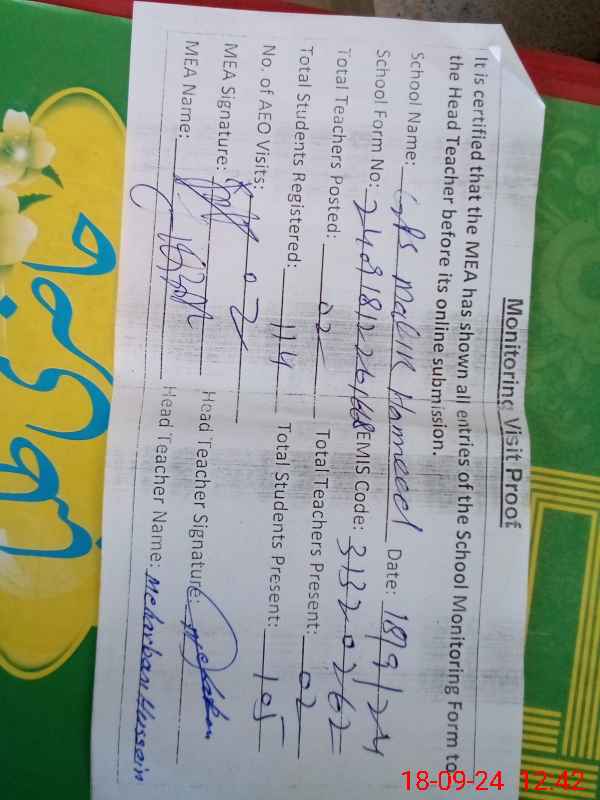 Monitoring Visit Proof
It is certified that the MEA has shown all entries of the School Monitoring Form to
the Head Teacher before its online submission.
School Name: GPS Malik Hameed Date: 18/9/24
School Form No: EMIS Code: 31320262
Total Teachers Posted: 02 Total Teachers Present: 02
Total Students Registered: 114 Total Students Present: 105
No. of AEO Visits: 02
MEA Signature: Head Teacher Signature:
MEA Name: Head Teacher Name: Meharban Hussain
18-09-24 12:42